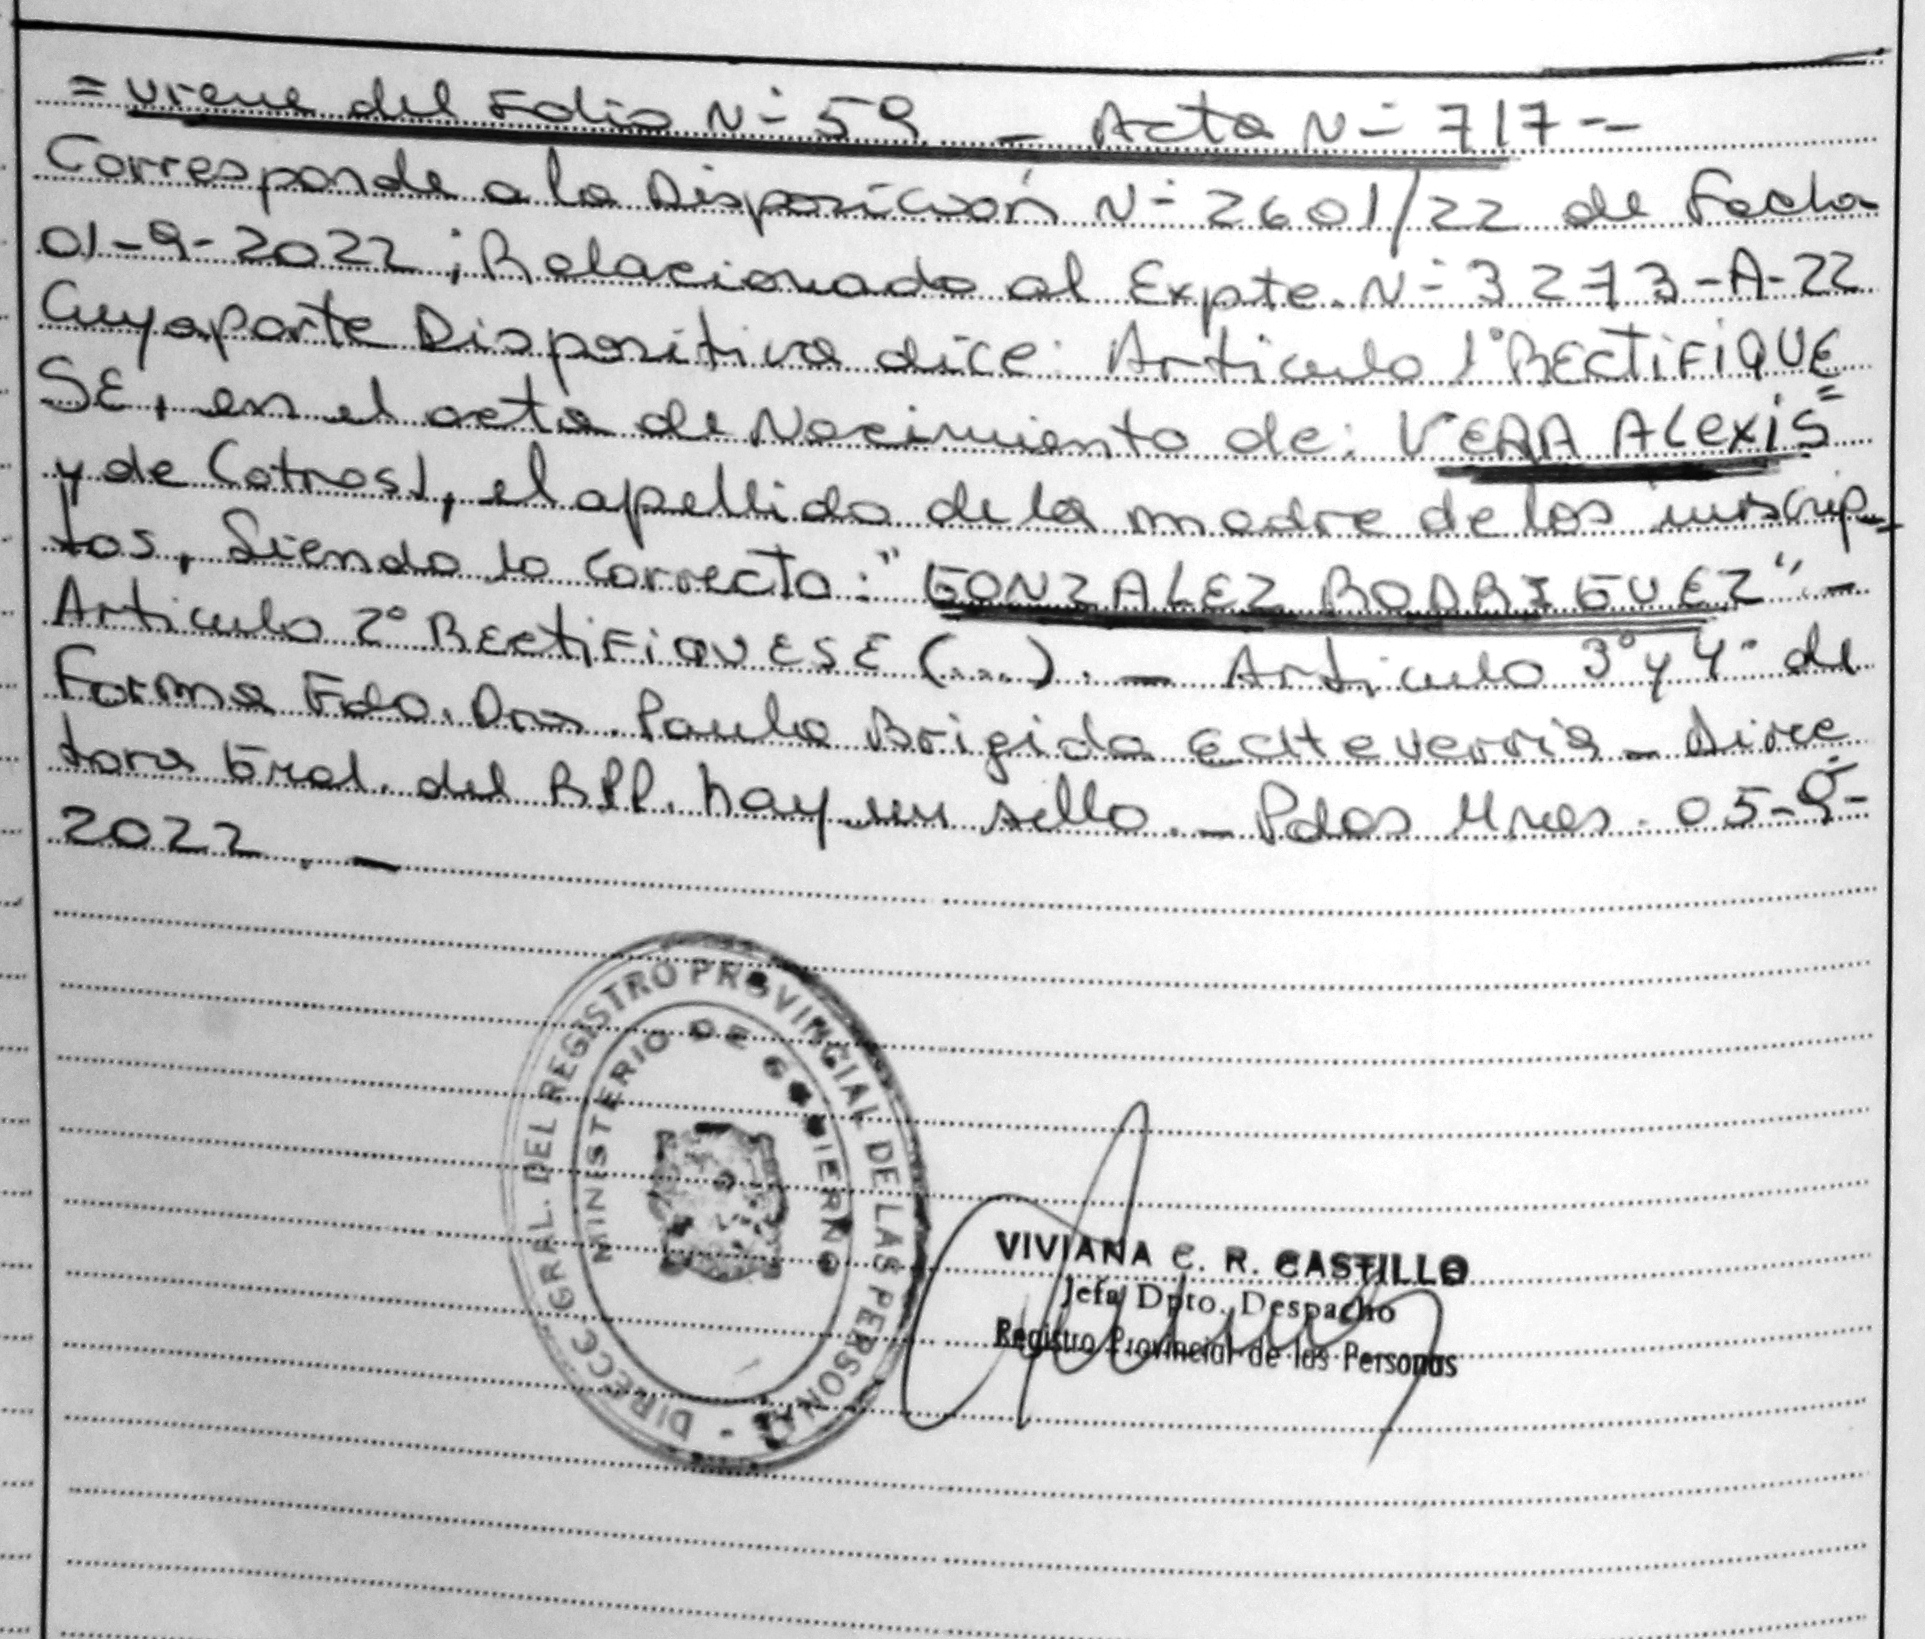 = viene del Folio N° 59 - Acta N° 717 --
Corresponde a la Disposición N° 2601/22 de Fecha
01-9-2022; Relacionado al Expte. N° 3273-A-22
Cuya parte Dispositiva dice: Articulo 1° RECTIFIQUE
SE, en el acta de Nacimiento de: VERA ALEXIS =
y de (otros), el apellido de la madre de los inscrip-
tos, Siendo lo Correcto: "GONZALEZ RODRIGUEZ". -
Articulo 2° RECTIFIQUESE (...). - Articulo 3° y 4° de
Forma Fdo. Dra. Paula Brigida Echeverria - Direc
tora Gral. del RPP. hay un sello. - Pdas Mnes. 05-9-
2022. -
DIRECC. GRAL. DEL REGISTRO PROVINCIAL DE LAS PERSONAS -
MINISTERIO DE GOBIERNO
VIVIANA C. R. CASTILLO
Jefa Dpto. Despacho
Registro Provincial de las Personas